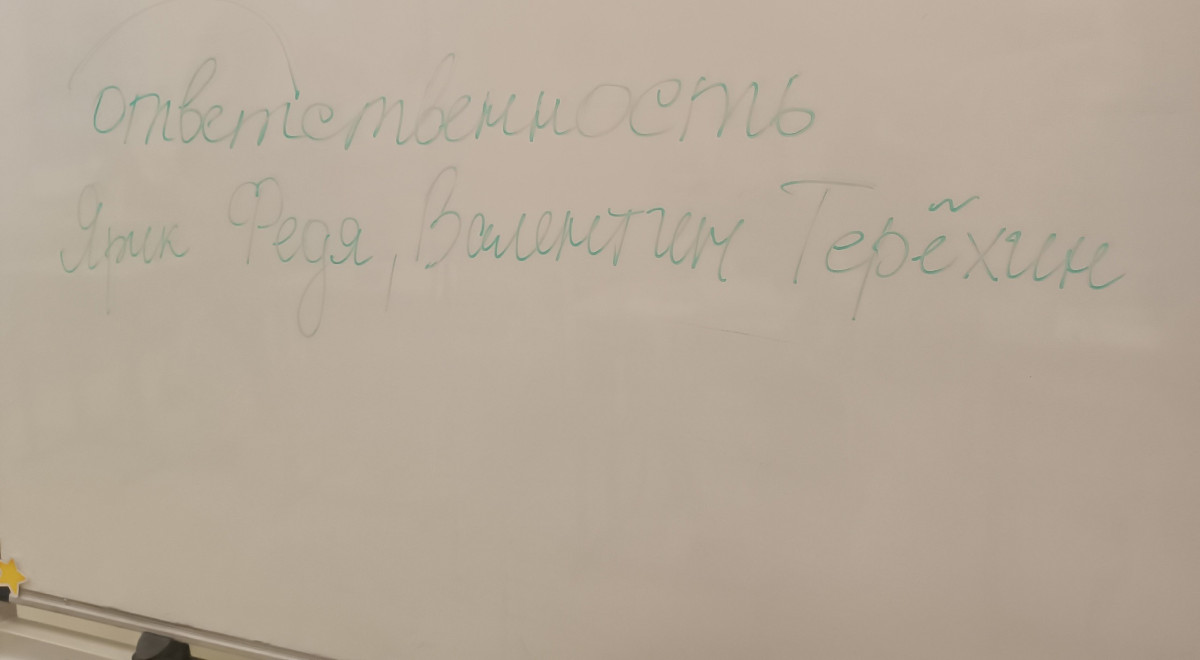 ответственность
Ярик Федя, Валентин Терёхин